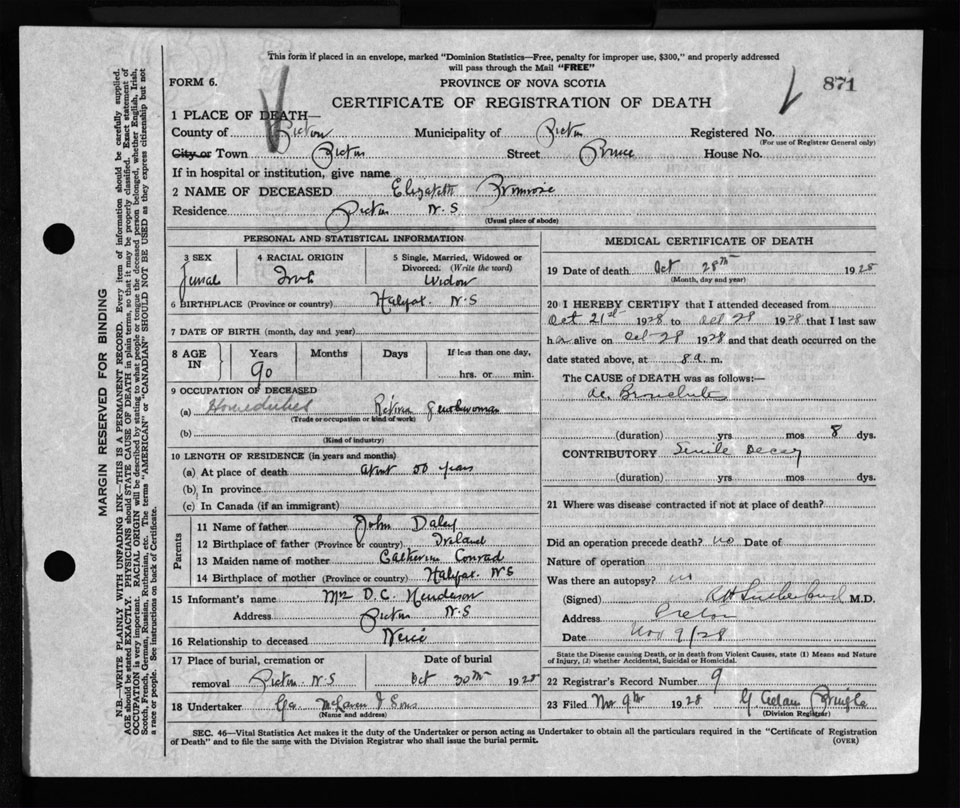 This form if placed in an envelope, marked "Dominion Statistics—Free, penalty for improper use, $300," and properly addressed
will pass through the Mail "FREE"
FORM 6.
PROVINCE OF NOVA SCOTIA
871
CERTIFICATE OF REGISTRATION OF DEATH
1 PLACE OF DEATH—
County of Pictou Municipality of Pictou Registered No.
(For use of Registrar General only)
City or Town Pictou Street Prince House No.
If in hospital or institution, give name
2 NAME OF DECEASED Elizabeth Primrose
Residence Pictou N.S
(Usual place of abode)
PERSONAL AND STATISTICAL INFORMATION
3 SEX 4 RACIAL ORIGIN 5 Single, Married, Widowed or
Divorced. (Write the word)
Femal Irish Widow
6 BIRTHPLACE (Province or country) Halifax. N.S
7 DATE OF BIRTH (month, day and year)
8 AGE IN Years Months Days If less than one day,
90 hrs. or min.
9 OCCUPATION OF DECEASED
(a) Homeduties Retired Gentlewoman
(Trade or occupation or kind of work)
(b)
(Kind of industry)
10 LENGTH OF RESIDENCE (in years and months)
(a) At place of death about 50 years
(b) In province
(c) In Canada (if an immigrant)
Parents
11 Name of father John Daley
12 Birthplace of father (Province or country) Ireland
13 Maiden name of mother Catherine Conrad
14 Birthplace of mother (Province or country) Halifax. N.S
15 Informant's name Mrs D.C. Henderson
Address Pictou N.S
16 Relationship to deceased Neice
17 Place of burial, cremation or Date of burial
removal Pictou N.S Oct 30th 1928
18 Undertaker Geo McLaren & Sons
(Name and address)
MEDICAL CERTIFICATE OF DEATH
19 Date of death Oct 28th 1928
(Month, day and year)
20 I HEREBY CERTIFY that I attended deceased from
Oct 21st 1928 to Oct 28 1928 that I last saw
h alive on Oct 28 1928 and that death occurred on the
date stated above, at 8 a. m.
The CAUSE OF DEATH was as follows:—
Ac. Bronchitis
(duration) yrs mos 8 dys.
CONTRIBUTORY Senile Decay
(duration) yrs mos dys.
21 Where was disease contracted if not at place of death?
Did an operation precede death? no Date of
Nature of operation
Was there an autopsy? no
(Signed) Sutherland M.D.
Address Pictou
Date Nov 9/28
State the Disease causing Death, or in death from Violent Causes, state (1) Means and Nature
of Injury, (2) whether Accidental, Suicidal or Homicidal.
22 Registrar's Record Number 9
23 Filed Nov 9th 1928 G. Pringle
(Division Registrar)
SEC. 46—Vital Statistics Act makes it the duty of the Undertaker or person acting as Undertaker to obtain all the particulars required in the "Certificate of Registration
of Death" and to file the same with the Division Registrar who shall issue the burial permit.
(OVER)
MARGIN RESERVED FOR BINDING
N.B.—WRITE PLAINLY WITH UNFADING INK—THIS IS A PERMANENT RECORD. Every item of information should be carefully supplied.
AGE should be stated EXACTLY. PHYSICIANS should STATE CAUSE OF DEATH in plain terms, so that it may be properly classified. Exact statement of
OCCUPATION is very important. RACIAL ORIGIN will be described by stating to what people or tongue the deceased person belonged, whether English, Irish,
Scotch, French, German, Russian, Ruthenian, etc. The terms "AMERICAN" or "CANADIAN" SHOULD NOT BE USED as they express citizenship but not
a race or people. See instructions on back of Certificate.